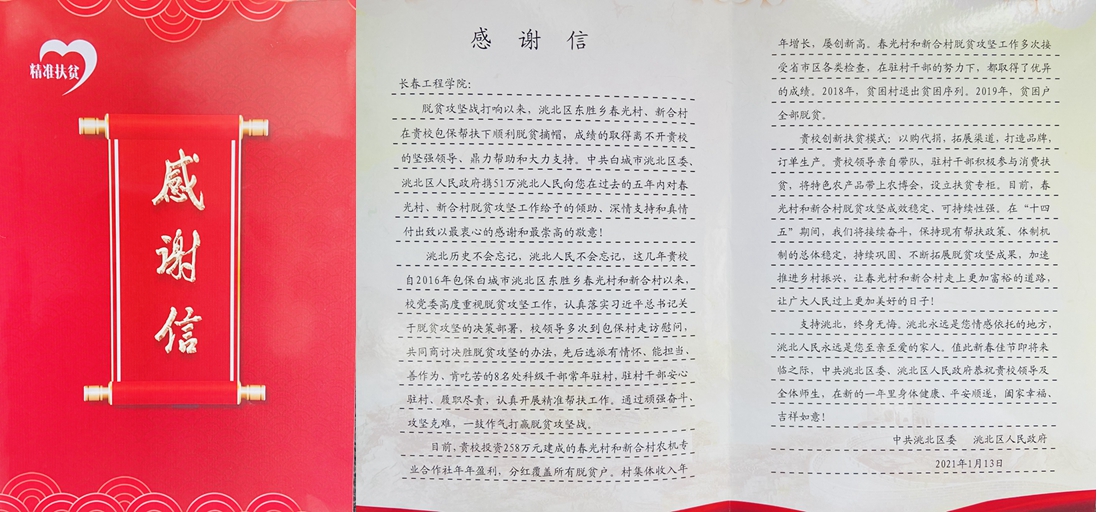 精准扶贫
感
谢
信
感谢信
长春工程学院：
脱贫攻坚战打响以来，洮北区东胜乡春光村、新合村
在贵校包保帮扶下顺利脱贫摘帽，成绩的取得离不开贵校
的坚强领导、鼎力帮助和大力支持。中共白城市洮北区委、
洮北区人民政府携51万洮北人民向您在过去的五年内对春
光村、新合村脱贫攻坚工作给予的倾助、深情支持和真情
付出致以最衷心的感谢和最崇高的敬意！
洮北历史不会忘记，洮北人民不会忘记，这几年贵校
自2016年包保白城市洮北区东胜乡春光村和新合村以来，
校党委高度重视脱贫攻坚工作，认真落实习近平总书记关
于脱贫攻坚的决策部署，校领导多次到包保村走访慰问，
共同商计决胜脱贫攻坚的办法，先后选派有情怀、能担当、
善作为、肯吃苦的8名处科级干部常年驻村，驻村干部安心
驻村、履职尽责，认真开展精准帮扶工作。通过顽强奋斗、
攻坚克难，一鼓作气打赢脱贫攻坚战。
目前，贵校投资258万元建成的春光村和新合村农机专
业合作社年年盈利，分红覆盖所有脱贫户。村集体收入年
年增长，屡创新高。春光村和新合村脱贫攻坚工作多次接
受省市区各类检查，在驻村干部的努力下，都取得了优异
的成绩。2018年，贫困村退出贫困序列。2019年，贫困户
全部脱贫。
贵校创新扶贫模式：以购代捐，拓展渠道，打造品牌，
订单生产。贵校领导亲自带队，驻村干部积极参与消费扶
贫，将特色农产品带上农博会，设立扶贫专柜。目前，春
光村和新合村脱贫攻坚成效稳定、可持续性强。在“十四
五”期间，我们将接续奋斗，保持现有帮扶政策、体制机
制的总体稳定，持续巩固、不断拓展脱贫攻坚成果，加速
推进乡村振兴，让春光村和新合村走上更加富裕的道路，
让广大人民过上更加美好的日子！
支持洮北，终身无悔。洮北永远是您情感依托的地方，
洮北人民永远是您至亲至爱的家人。值此新春佳节即将来
临之际，中共洮北区委、洮北区人民政府恭祝贵校领导及
全体师生，在新的一年里身体健康、平安顺遂，阖家幸福、
吉祥如意！
中共洮北区委 洮北区人民政府
2021年1月13日